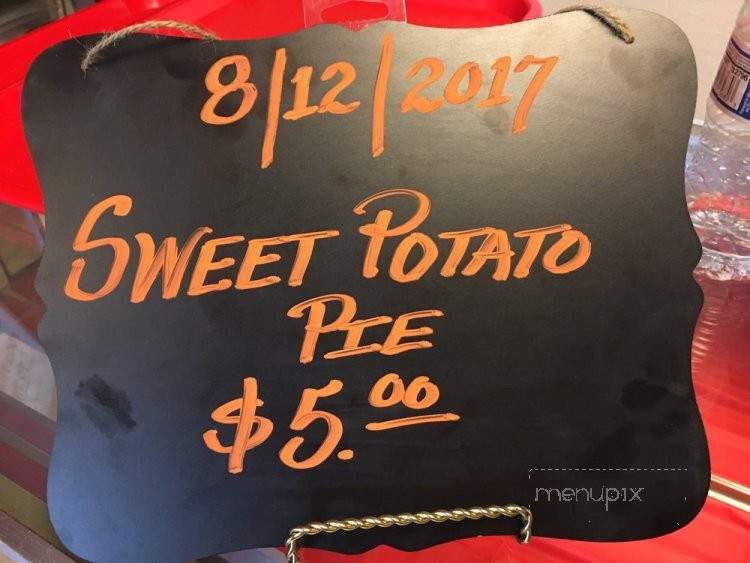 8/12/2017
SWEET POTATO
PIE
$5.00
menupix